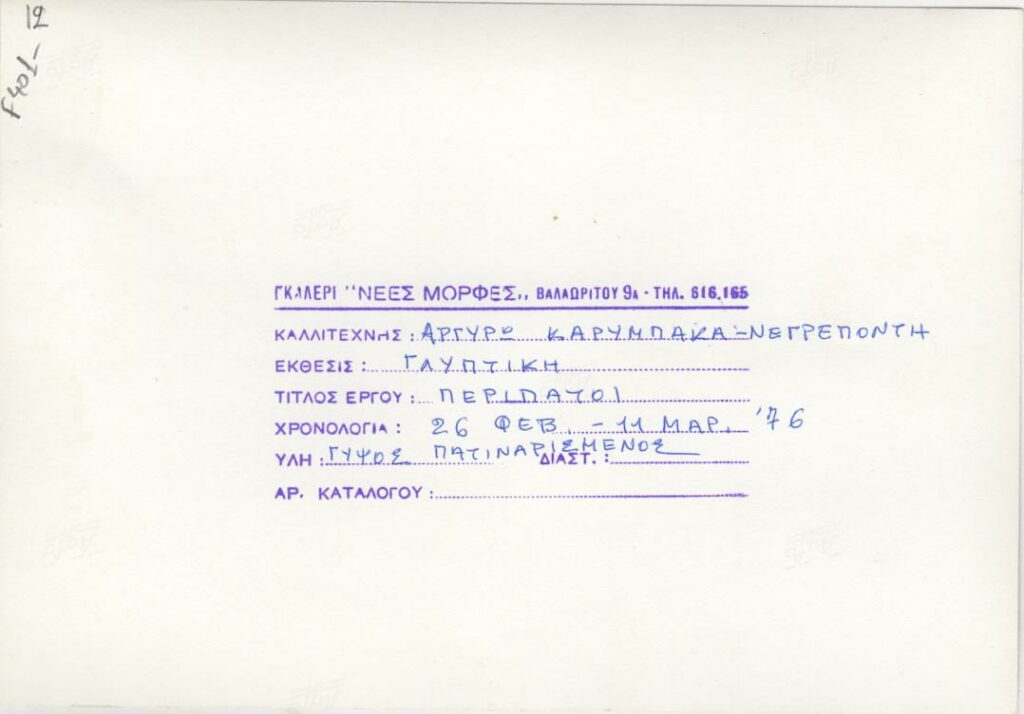 12
F401-
ΓΚΑΛΕΡΙ "ΝΕΕΣ ΜΟΡΦΕΣ,, ΒΑΛΑΩΡΙΤΟΥ 9Α - ΤΗΛ. 616.165
ΚΑΛΛΙΤΕΧΝΗΣ : ΑΡΓΥΡΩ ΚΑΡΥΜΠΑΚΑ-ΝΕΓΡΕΠΟΝΤΗ
ΕΚΘΕΣΙΣ : ΓΛΥΠΤΙΚΗ
ΤΙΤΛΟΣ ΕΡΓΟΥ : ΠΕΡΙΠΑΤΟΙ
ΧΡΟΝΟΛΟΓΙΑ : 26 ΦΕΒ. - 11 ΜΑΡ. '76
ΥΛΗ : ΓΥΨΟΣ ΠΑΤΙΝΑΡΙΣΜΕΝΟΣ ΔΙΑΣΤ. :
ΑΡ. ΚΑΤΑΛΟΓΟΥ :